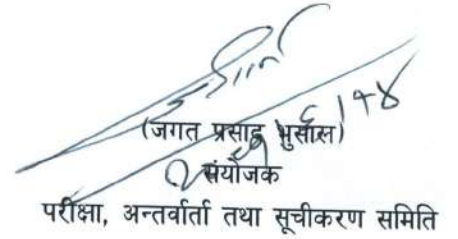 (जगत प्रसाद भुसाल)
संयोजक
परीक्षा, अन्तर्वार्ता तथा सूचीकरण समिति